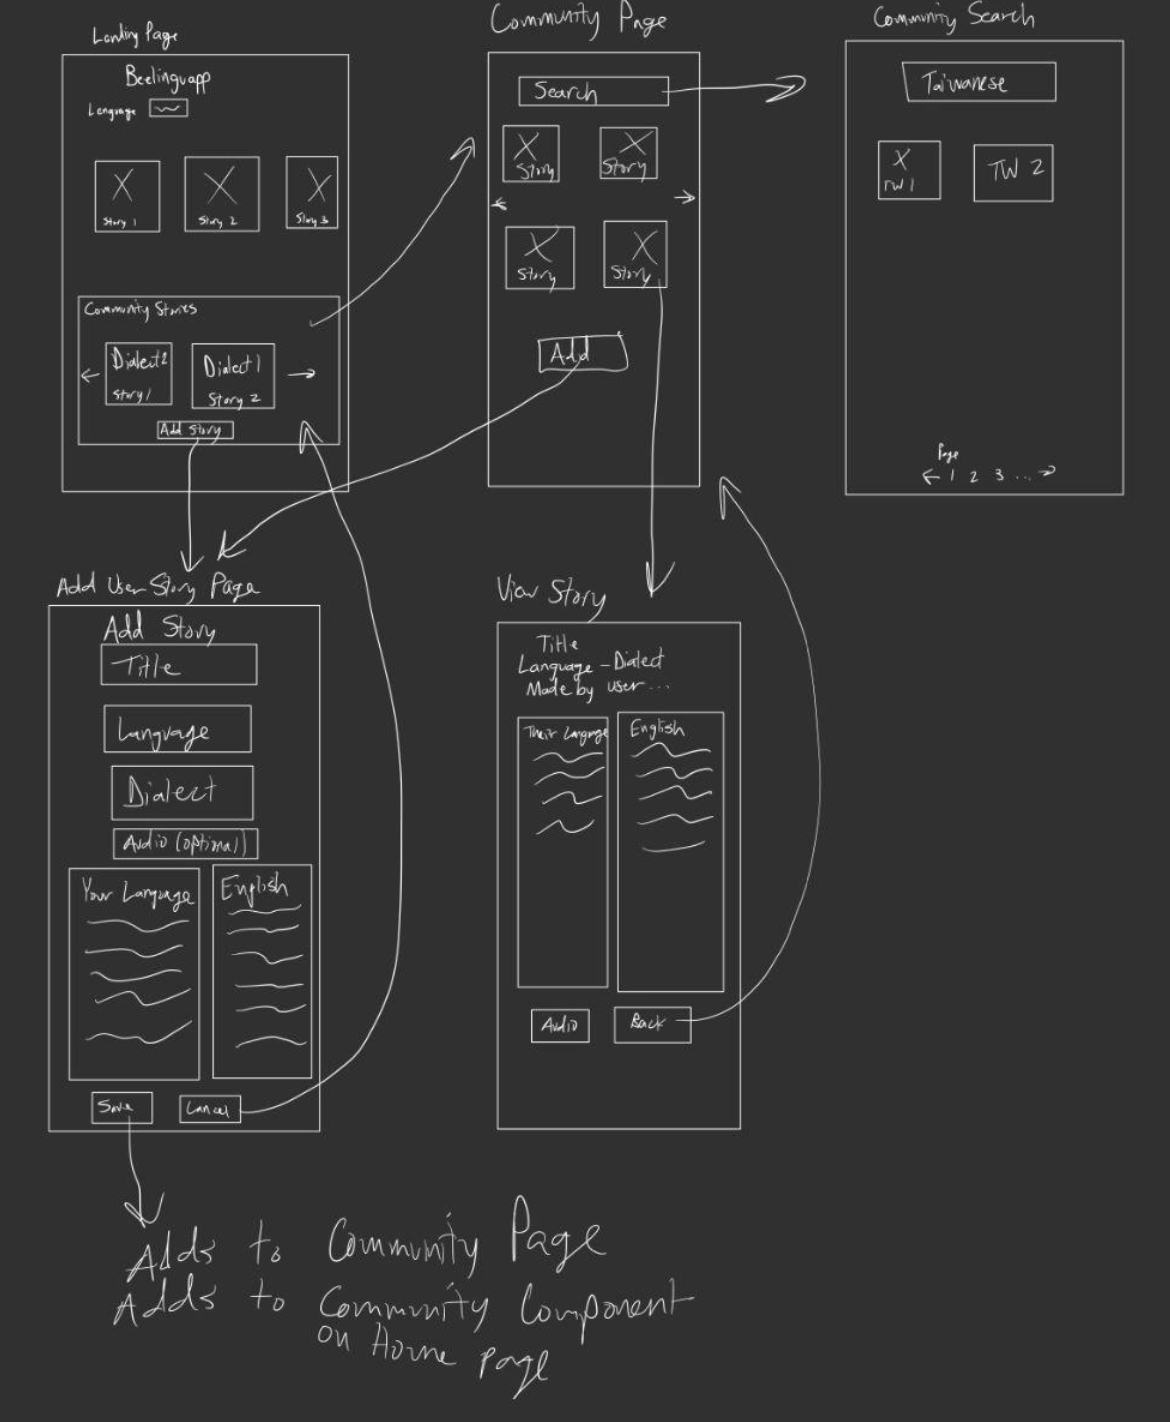 Landing Page
Beelinguapp
Language
Story 1
Story 2
Story 3
Community Stories
Dialect2
Story 1
Dialect 1
Story 2
Add Story
Community Page
Search
Story
Story
Story
Story
Add
Community Search
Taiwanese
TW 1
TW 2
Page
1 2 3 ...
Add User Story Page
Add Story
Title
Language
Dialect
Audio (optional)
Your Language
English
Save
Cancel
View Story
Title
Language - Dialect
Made by user...
Their Language
English
Audio
Back
Adds to Community Page
Adds to Community Component
on Home page